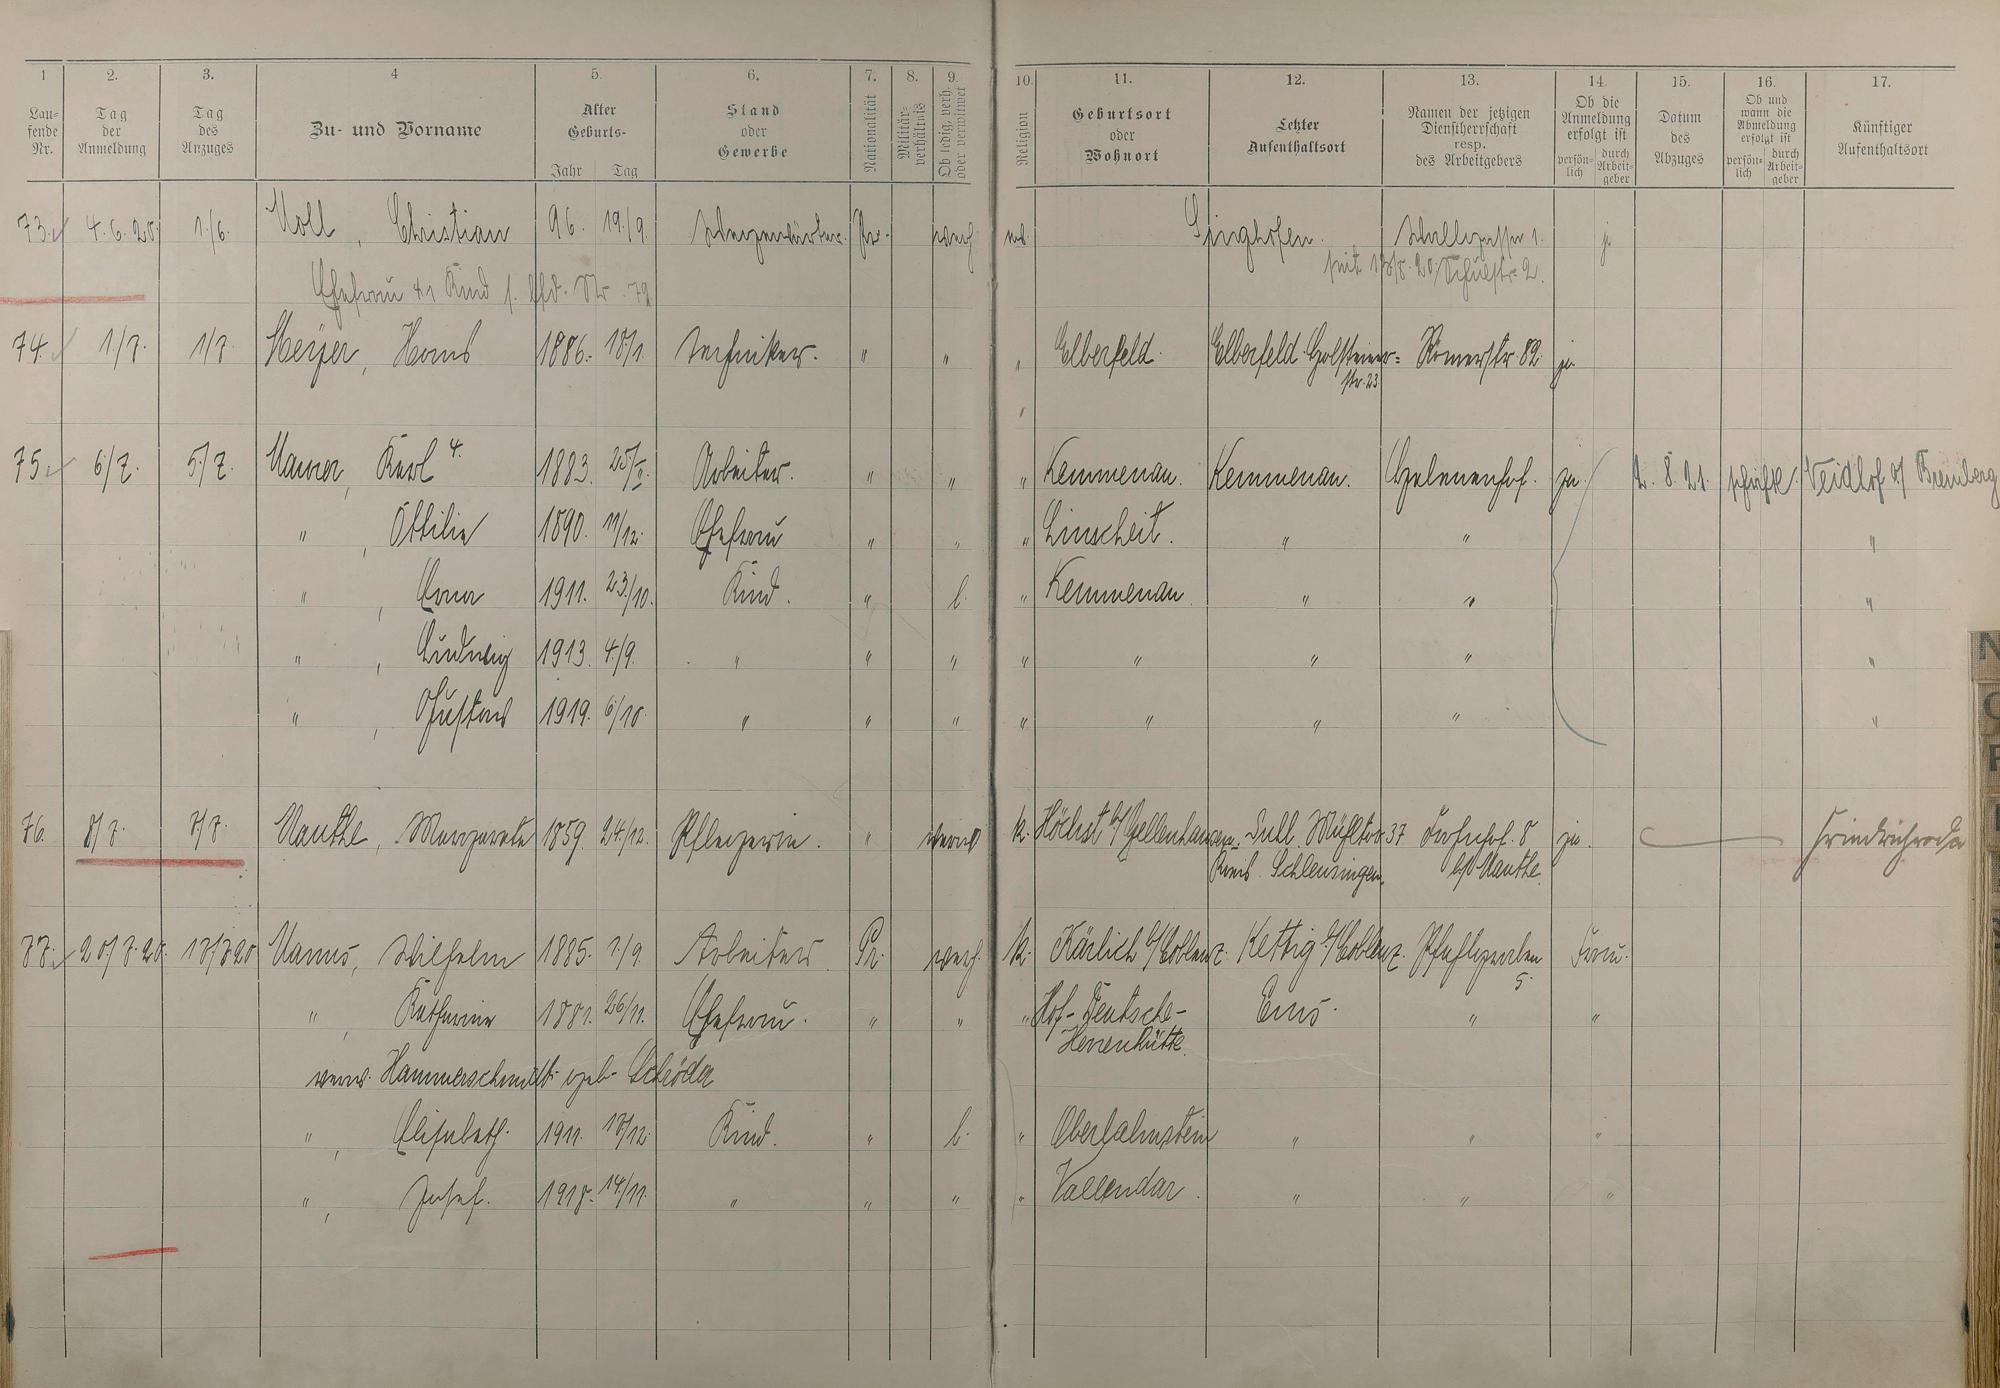 1 2. 3. 4 5. 6. 7. 8. 9. 10. 11. 12. 13. 14. 15. 16. 17.
Lau-
fende
Nr.
Tag
der
Anmeldung
Tag
des
Anzuges
Zu- und Vorname
Alter
Geburts-
Jahr Tag
Stand
oder
Gewerbe
Nationalität
Militär-
verhältnis
Ob ledig, verh.
oder verwitwet
Religion
Geburtsort
oder
Wohnort
Letzter
Aufenthaltsort
Namen der jetzigen
Dienstherrschaft
resp.
des Arbeitgebers
Ob die
Anmeldung
erfolgt ist
persön-
lich
durch
Arbeit-
geber
Datum
des
Abzuges
Ob und
wann die
Abmeldung
erfolgt ist
persön-
lich
durch
Arbeit-
geber
Künftiger
Aufenthaltsort
73. 4.6.20. 1./6. Christian 96. 19./9. Pr. verh. Singhofen. 1. ja
Ehefrau u. 1 Kind s. lfd. Nr. 72 seit Schulstr. 2.
74. 1/7. 1/7. Meyer, Hans 1886. 18/1. Techniker. " " " Elberfeld. Elberfeld Holsteiner- Römerstr. 82. ja.
str. 23
"
75. 6/7. 5/7. Maurer, Karl 4. 1883. 25/II. Arbeiter. " " " Kemmenau. Kemmenau. Helenenhof. ja. 2. 8. 21. schriftl. Veidhof b/ Bremberg
" , Ottilie 1890. 11/12. Ehefrau " " " Linscheit. " " "
" , Erna 1911. 23./10. Kind. " l. " Kemmenau " " "
" , Ludwig 1913. 4./9. " " " " " " " "
" , Gustav 1919. 6/10. " " " " " " " "
76. 8/7. 7/7. Manthe, Margarete 1859. 24/12. Pflegerin. " verw. k. Höchst b/ Gellenhausen. Suhl. Mühltor 37 8 ja. Friedrichroda
Kreis Schleusingen. b/ Manthe.
77. 20/7.20. 17/7.20 Manns, Wilhelm 1885. 1./9. Arbeiter. Pr. verh. k. Kärlich b/Coblenz. Kettig b/Coblenz. Pfahlgraben Frau.
5.
" , Katharine 1881. 26/11. Ehefrau. " " " Hof-Deutsche- Ems. " "
Herrenhütte.
verw. Hammerschmidt geb. Schröder
" , Elisabeth. 1911. 17/12. Kind. " l. " Oberlahnstein " " "
" , Josef. 1918. 14./11. " " " " Vallendar. " " "